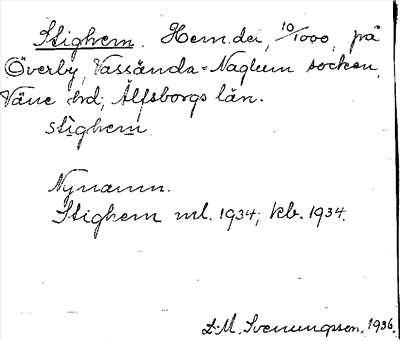 Stighem. Hem.del, 10/1000, på
Överby, Vassända=Naglum socken,
Väne hd; Älfsborgs län.
stighem
Nynamn.
Stighem ml. 1934; kb. 1934.
D.M. Svenungsson. 1936.